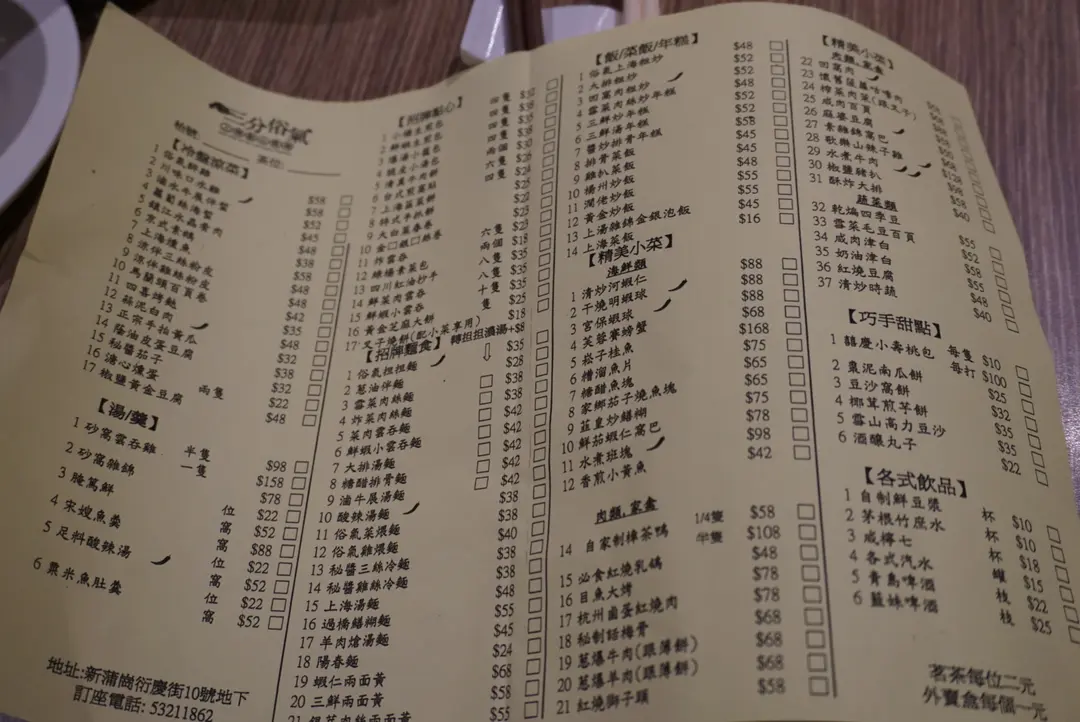 三分俗氣
枱號:
茶位:
【冷盤涼菜】
$58
$58
$52
$45
$48
$38
$58
$48
$42
$35
$48
$32
$38
$32
$22
$48
6 京式素鵝
7 上海燻魚
8 涼伴三絲粉皮
9 涼伴雞絲粉皮
10 馬蘭頭百頁卷
11 四喜烤麩
12 蒜泥白肉
13 正宗手拍黃瓜
14 蔭油皮蛋豆腐
15 秘醬茄子
16 溏心燻蛋 兩隻
17 椒鹽黃金豆腐
【湯/羹】
1 砂窩雲吞雞 半隻 $98
一隻 $158
2 砂窩雜錦 $78
3 腌篤鮮 位 $22
窩 $52
4 宋嫂魚羹 窩 $88
位 $22
5 足料酸辣湯 窩 $52
位 $22
6 粟米魚肚羹 窩 $52
地址:新蒲崗衍慶街10號地下
訂座電話: 53211862
【招牌點心】
1 小籠生煎包
2 鮮蝦生煎包
14 鮮菜肉雲吞
15 鮮蝦小雲吞
16 黃金芝麻大餅
17 叉子燒餅(配小菜享用) $18
【招牌麵食】 轉担担濃湯+$8
1 俗氣担担麵 $35
2 蔥油伴麵 $28
3 雪菜肉絲麵 $38
4 炸菜肉絲麵 $38
5 菜肉雲吞麵 $42
6 鮮蝦小雲吞麵 $42
7 大排湯麵 $42
8 糖醋排骨麵 $42
9 滷牛展湯麵
10 酸辣湯麵
11 俗氣菜煨麵
12 俗氣雞煨麵
13 秘醬三絲冷麵
14 秘醬雞絲冷麵
15 上海湯麵
16 過橋鱔糊麵
17 羊肉熗湯麵
18 陽春麵
19 蝦仁兩面黃
20 三鮮兩面黃
$38
$38
$40
$38
$38
$48
$55
$45
$24
$68
$58
$55
【飯/菜飯/年糕】
1 俗氣上海粗炒 $48
2 大排粗炒 $52
3 回窩肉粗炒 $52
4 雪菜肉絲炒年糕 $48
5 三鮮炒年糕 $52
6 三鮮湯年糕 $52
7 醬炒排骨年糕 $58
8 排骨菜飯 $45
9 雞扒菜飯 $45
10 楊州炒飯 $48
11 濶佬炒飯 $55
12 黃金炒飯 $55
13 上湯雜錦金銀泡飯 $45
14 上海菜飯 $16
【精美小菜】
海鮮類
1 清炒河蝦仁 $88
2 干燒明蝦球 $88
3 宮保蝦球 $88
4 芙蓉賽螃蟹 $68
5 崧子桂魚 $168
6 糟溜魚片 $75
7 糖醋魚塊 $65
8 家鄉茄子燒魚塊 $65
9 韮皇炒鱔糊 $75
10 鮮茄蝦仁窩巴 $78
11 水煮班塊 $98
12 香煎小黃魚 $42
肉類,家禽
14 自家制樟茶鴨 1/4隻 $58
半隻 $108
15 必食紅燒乳鴿 $48
16 目魚大烤 $78
17 杭州鹵蛋紅燒肉 $78
18 秘制話梅骨 $68
19 蔥爆牛肉(跟薄餅) $68
20 蔥爆羊肉(跟薄餅) $68
21 紅燒獅子頭 $58
【精美小菜】
肉類,家禽
22 回窩肉
23 懷舊菠蘿咕嚕肉
24 榨菜肉菜(跟叉子)
25 咸肉百頁
26 麻婆豆腐
27 素雜錦窩巴
28 歌樂山辣子雞
29 水煮牛肉
30 椒鹽豬扒
31 酥炸大排
蔬菜類
32 乾煸四季豆 $55
33 雪菜毛豆百頁 $52
34 咸肉津白 $58
35 奶油津白 $55
36 紅燒豆腐 $48
37 清炒時蔬 $40
【巧手甜點】
1 囍慶小壽桃包 每隻 $10
每打 $100
2 棗泥南瓜餅 $25
3 豆沙窩餅 $32
4 椰茸煎芋餅 $35
5 雪山高力豆沙 $35
6 酒釀丸子 $22
【各式飲品】
1 自制鮮豆漿 杯 $10
2 茅根竹蔗水 杯 $10
3 咸檸七 杯 $18
4 各式汽水 罐 $15
5 青島啤酒 枝 $22
6 藍妹啤酒 枝 $25
茗茶每位二元
外賣盒每個一元